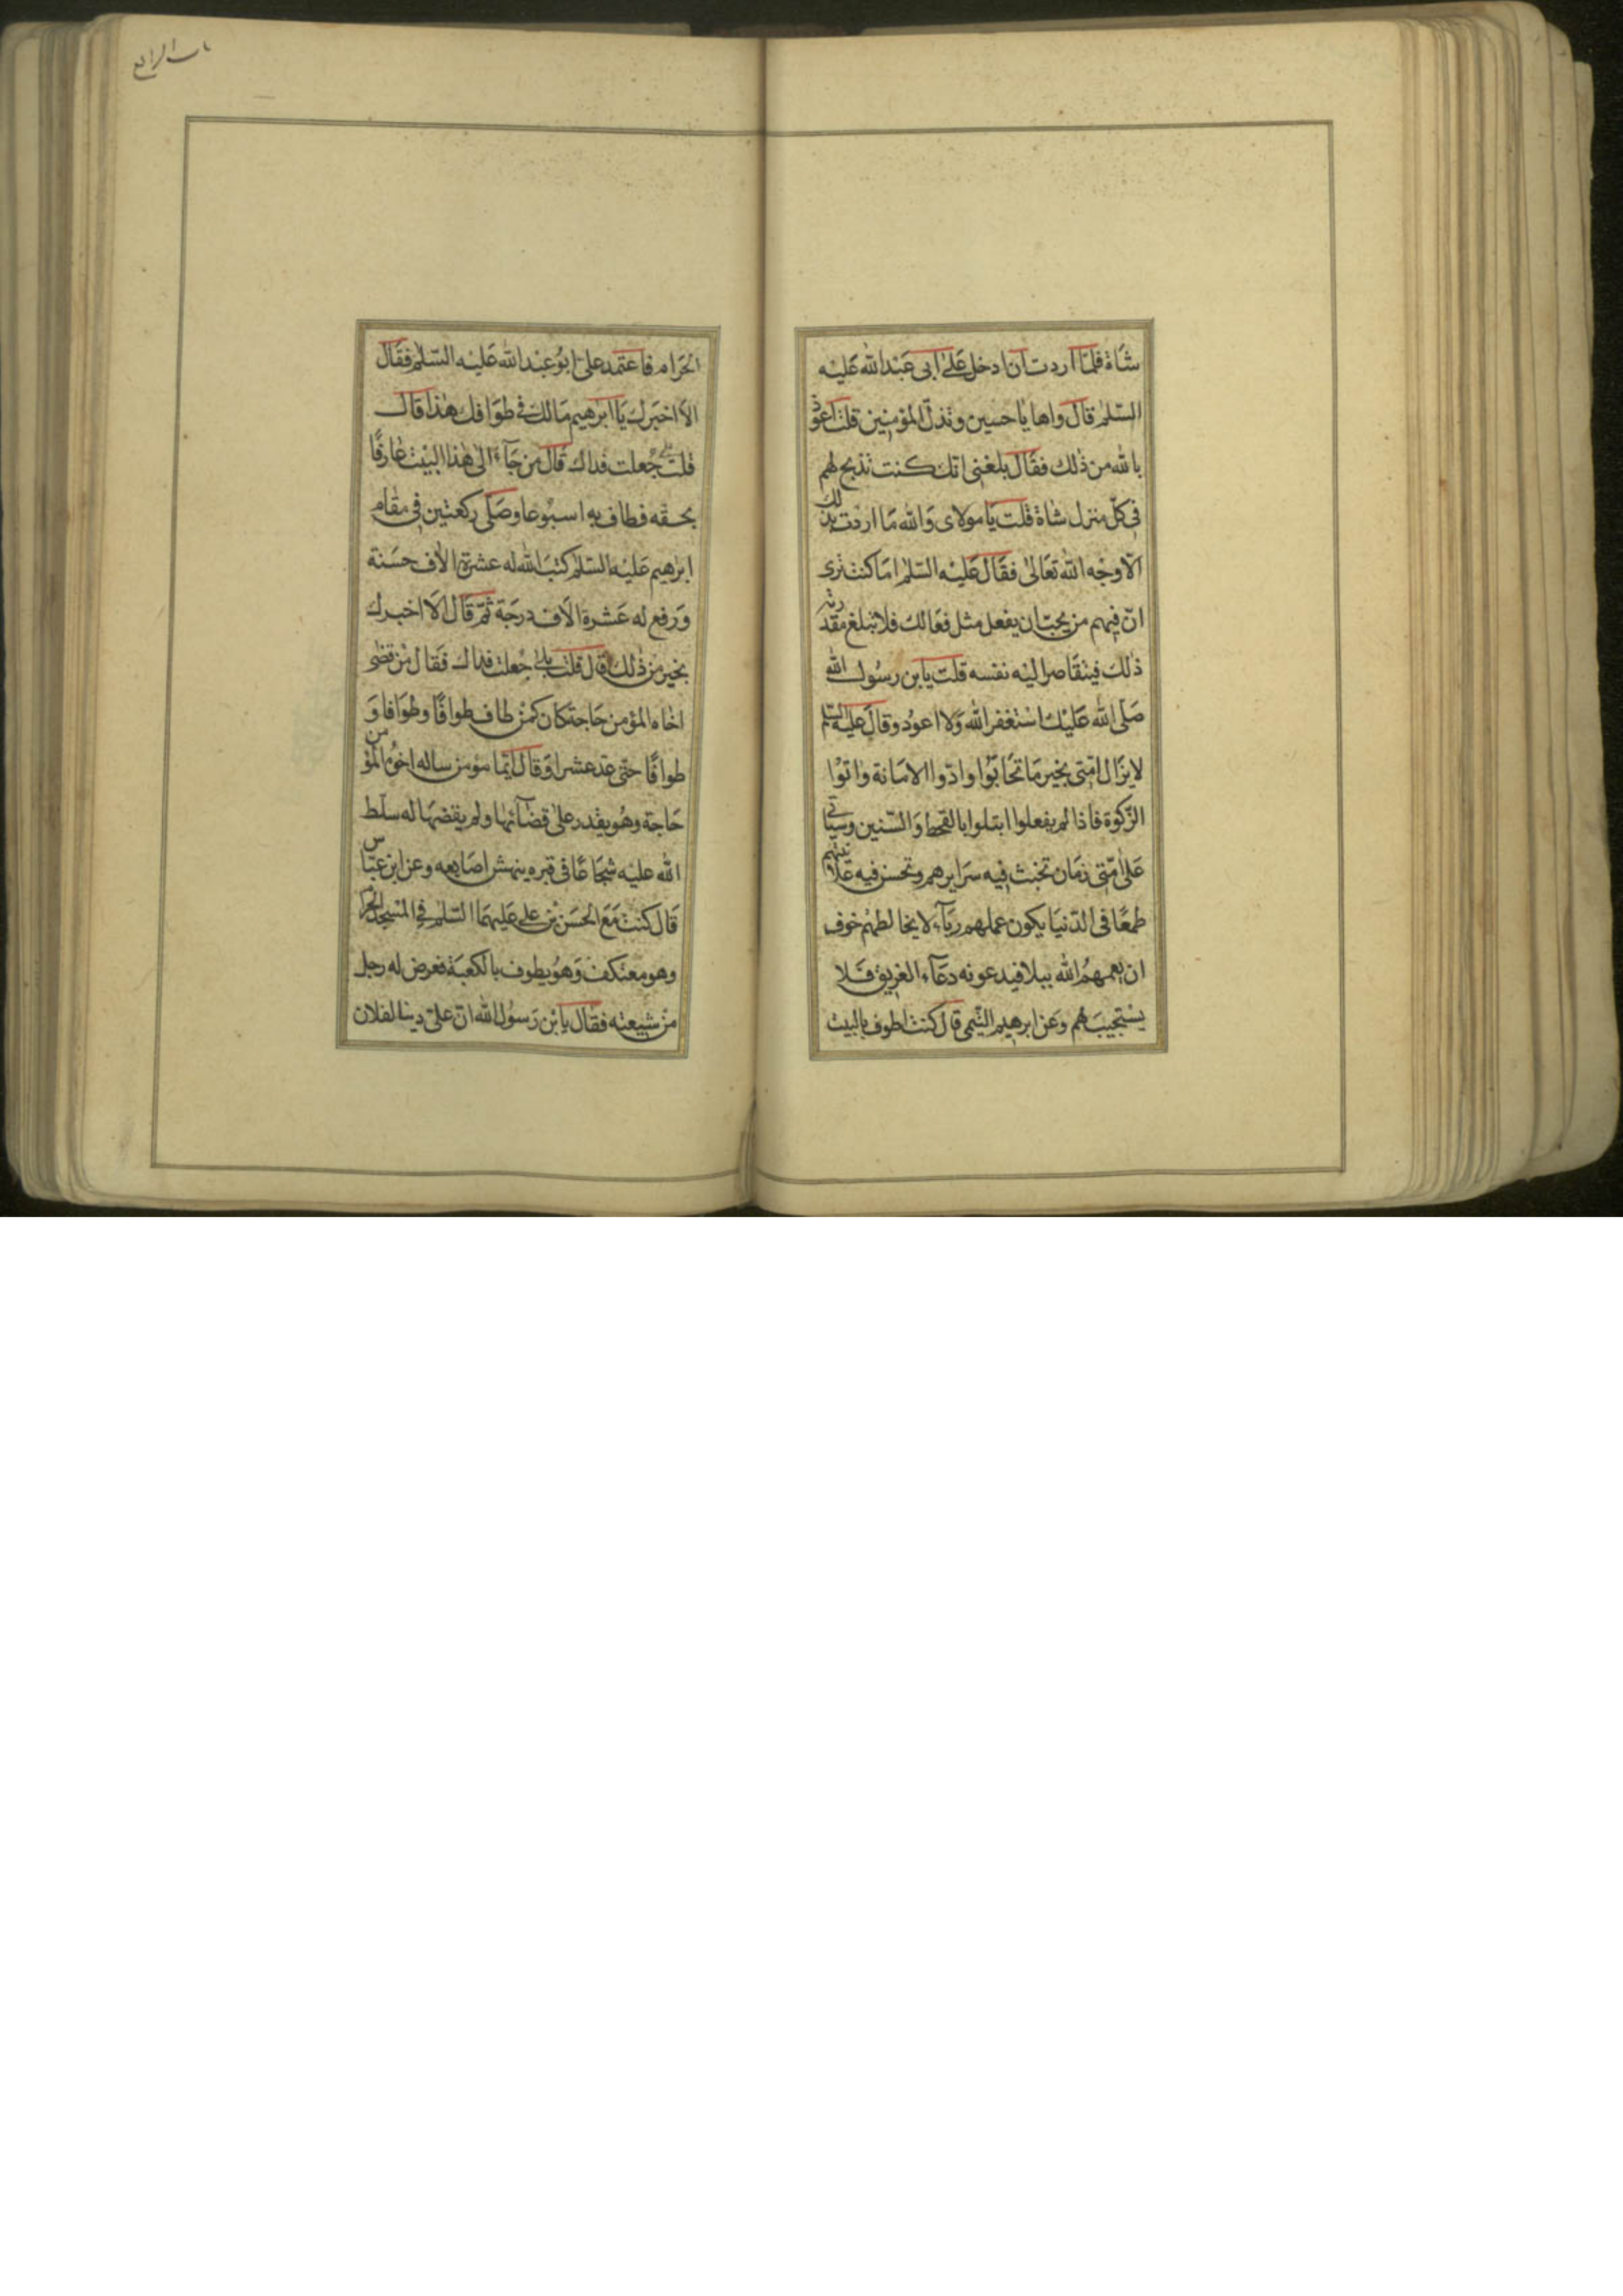 شَاة فلمّا اردت ان ادخل عَلىٰ ابى عَبْد الله عَليْه
السّلم قال واها يا حسين وتذلّ المؤمنين قلت اعوذ
بالله من ذٰلك فقَال بلغنى انّك كنت تذبح لهم
فى كلّ منزل شاة قلت يَا مولاى وَالله مَا اردْت بذلك
الّا وجْه الله تعَالىٰ فقَال عَليْه السّلم امَا كنت ترى
انّ فيهم من يحبّ ان يفعل مثل فعَالك فلا تبلغ مقدرته
ذٰلك فيتقَاصر اليْه نفسه قلت يا بن رسُول الله
صَلّى الله عَليْك اسْتغفر الله وَلا اعودُ وقال عليه السّلم
لا يزَال امّتى بخير مَا تحَابّوا وادّوا الامَانة واتوْا
الزّكوة فاذا لم يفعلوا ابتلوا بالقحط وَالسّنين وسيَاتى
عَلى امّتى زمَان تخبث فيه سَرايرهم وتحسن فيه عَلانيتهم
طمعًا فى الدّنيَا يكون عملهم ريَآء لا يخالطهم خوف
ان يعمهمُ الله ببلا فيدعونه دعَآء الغريق فَلا
يسْتجيبَ لهم وعَن ابرهيم التّيمى قال كنت اطوف بالبيت
الحَرام فاعتمد علىّ ابُو عبْد الله عَليْه السّلم فقَال
الَا اخبَرك يَا ابرٰهيم مَا لك فى طوَافك هٰذا قال
قلت بلى جُعلت فداك قَال من جَآء الىٰ هٰذا البيْت عَارفًا
بحقه فطاف به اسبُوعا وصَلّى ركعتين فى مقام
ابرٰهيم عَليْه السّلم كتبَ الله له عشرة الٰاف حسَنة
وَرفع له عَشرة الَاف درجَة ثمّ قَال الَا اخبرك
بخير من ذٰلك قال قلت بلىٰ جُعلت فداك فقَال مَنْ قضٰى
اخاه المؤمن حَاجة كان كمَنْ طاف طوافًا وطوَافا وَ
طوافًا حتّى عد عشرا وَقال ايّما مؤمن ساله اخوُه المؤمن
حَاجة وهُو يقْدر علىٰ قضَآئهٰا ولم يقضهَا له سلّط
الله عليْه شجَاعًا فى قبره ينهش اصَابعه وعن ابن عبّاس
قَال كنت مَعَ الحسَن بْن علىّ عَليهمَا السّلم فى المسْجد الحرام
وهو معتكف وَهُو يطوف بالكعبَة فعرض له رجل
مَنْ شيعته فقَال يا بْن رَسوُل الله انّ علىّ دينا لفلان